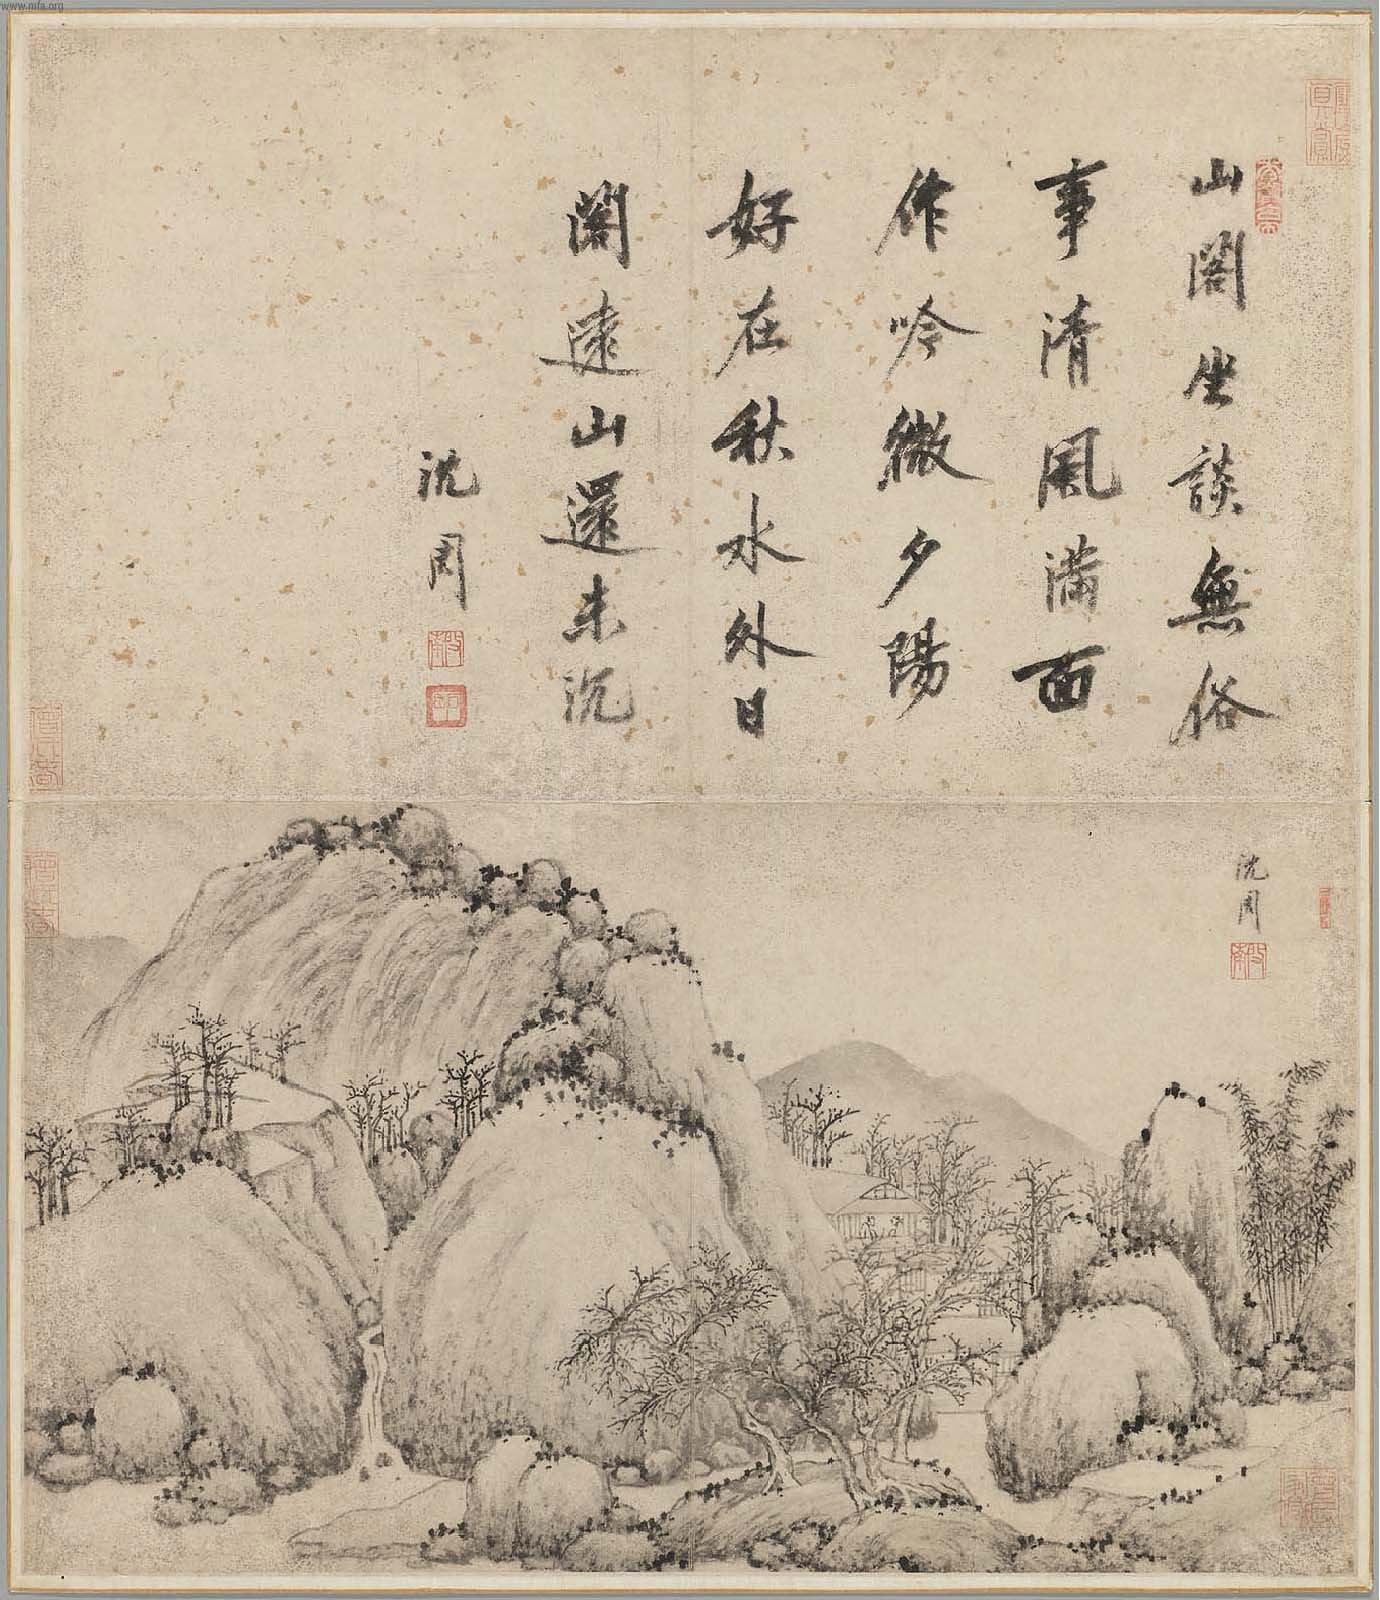 www.mfa.org
山閣坐談無俗
事清風滿面
作吟微夕陽
好在秋水外日
闌遠山還未沉
沈周
沈周